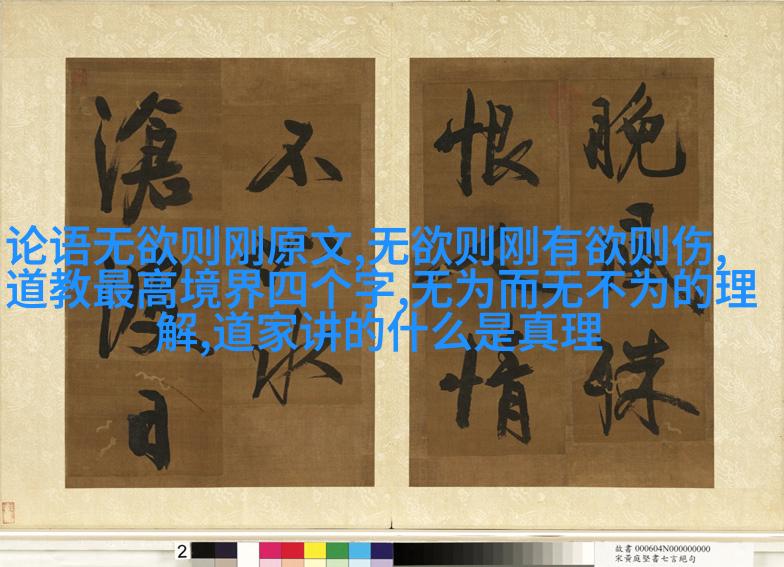 论语无欲则刚原文,无欲则刚有欲则伤,
道教最高境界四个字,无为而无不为的理
解,道家讲的什么是真理
晚風殊
恨情
不水
滄浪日
2
故書 000604N000000000
宋黃庭堅書七言絕句